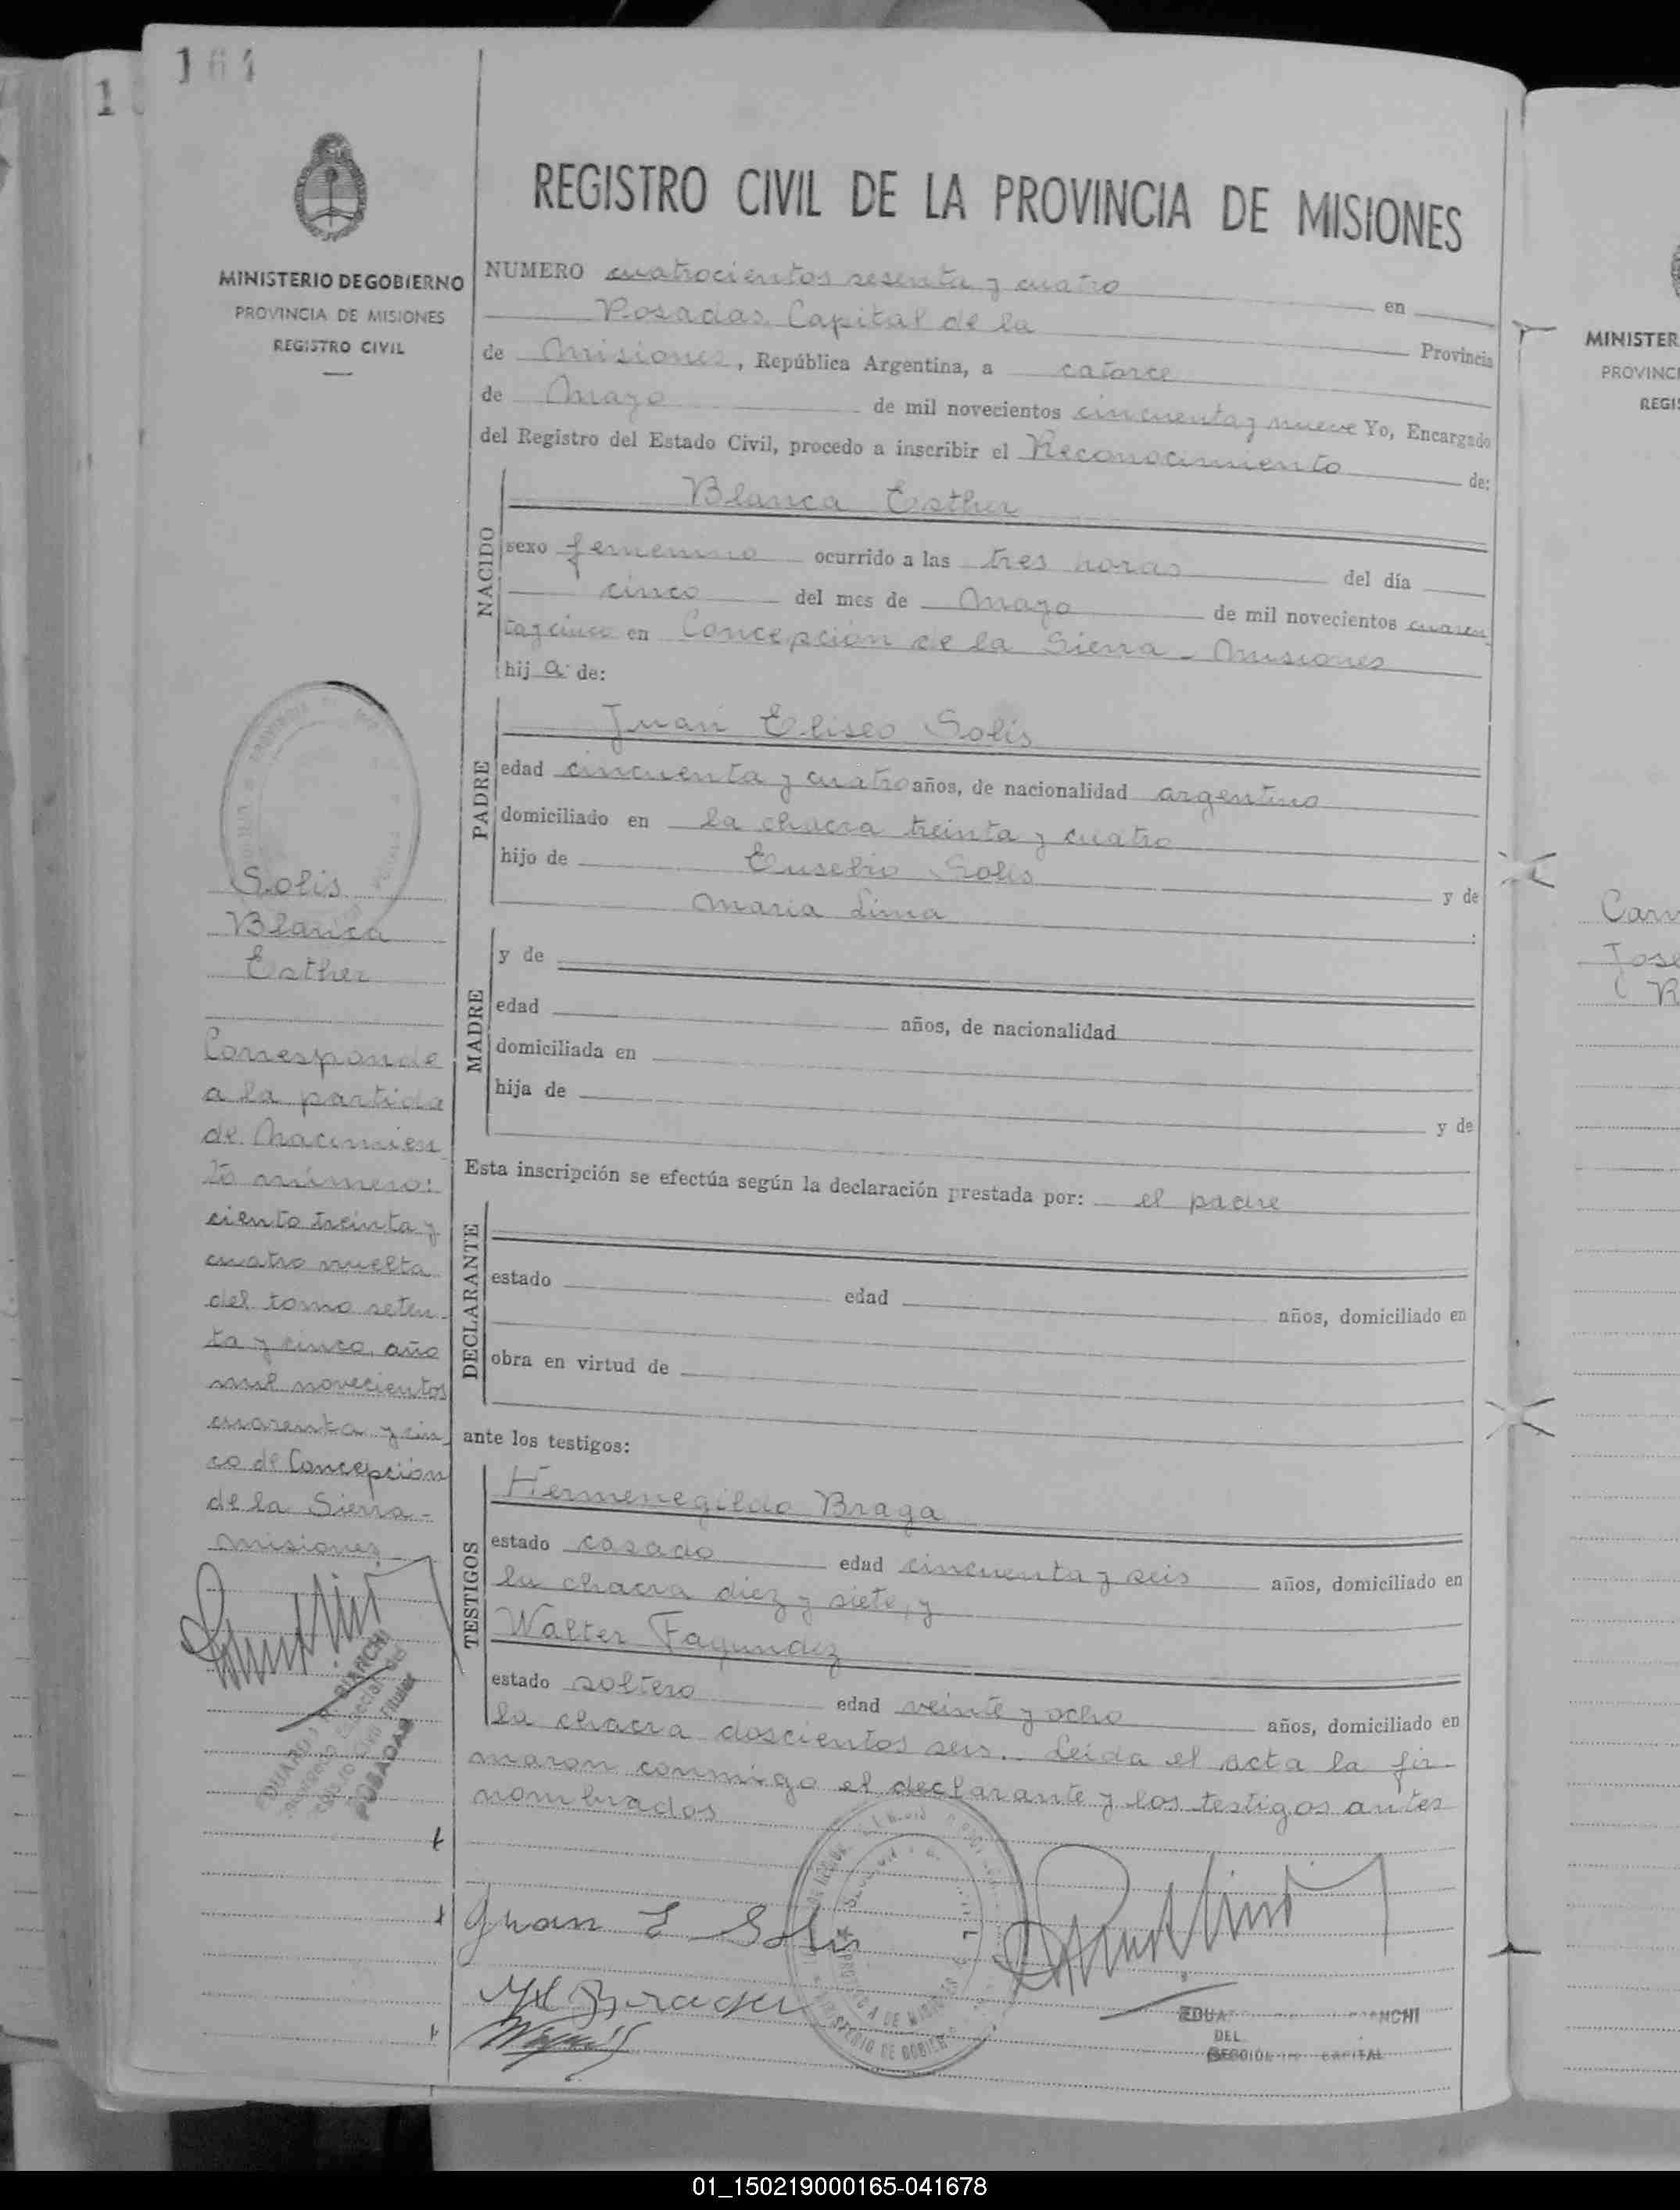 164
1
MINISTERIO DE GOBIERNO
PROVINCIA DE MISIONES
REGISTRO CIVIL
REGISTRO CIVIL DE LA PROVINCIA DE MISIONES
NUMERO cuatrocientos sesenta y cuatro en
Posadas Capital de la Provincia
de Misiones, República Argentina, a catorce
de Mayo de mil novecientos cincuenta y nueve Yo, Encargado
del Registro del Estado Civil, procedo a inscribir el Reconocimiento de:
NACIDO
Blanca Esther
sexo femenino ocurrido a las tres horas del día
cinco del mes de Mayo de mil novecientos cuaren
ta y cinco en Concepción de la Sierra - Misiones
hij a de:
PADRE
Juan Eliseo Solis
edad cincuenta y cuatro años, de nacionalidad argentino
domiciliado en la chacra treinta y cuatro
hijo de Eusebio Solis y de
Maria Lima :
MADRE
y de
edad años, de nacionalidad
domiciliada en
hija de y de
Esta inscripción se efectúa según la declaración prestada por: el padre
DECLARANTE
estado edad años, domiciliado en
obra en virtud de
ante los testigos:
TESTIGOS
Hermenegildo Braga
estado casado edad cincuenta y seis años, domiciliado en
la chacra diez y siete, y
Walter Fagundez
estado soltero edad veinte y ocho años, domiciliado en
la chacra doscientos seis. Leida el acta la fir
maron conmigo el declarante y los testigos antes
nombrados
Juan E Solis
H Braga
DEL
CAPITAL
Solis
Blanca
Esther
Corresponde
a la partida
de Nacimien
to número:
ciento treinta y
cuatro vuelta
del tomo seten
ta y cinco, año
mil novecientos
cuarenta y cin
co de Concepción
de la Sierra -
Misiones
EDUARDO BIANCHI
POSADAS
MINISTER
PROVINC
REGIS
Carm
Jose
(R
01_150219000165-041678